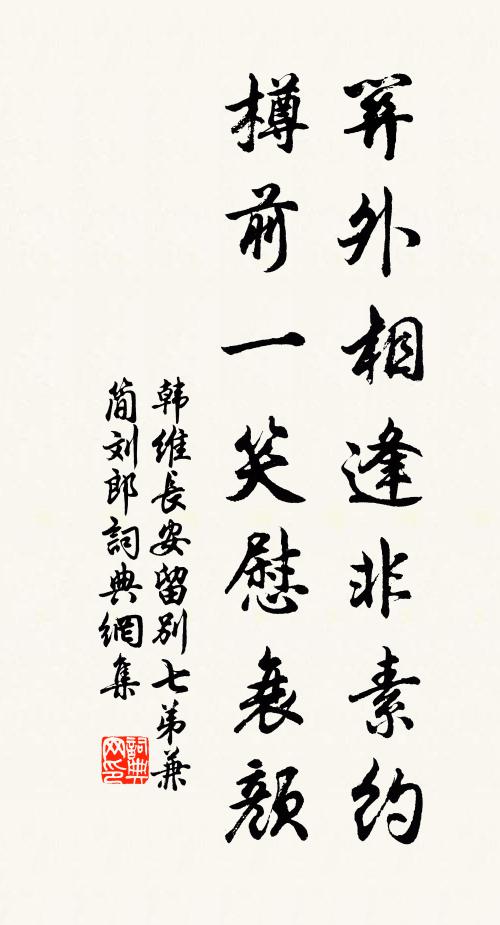 筭外相逢非素约
樽前一笑慰衰顏
韩维長安留别七弟兼
简刘郎詞典網集
詞典网印